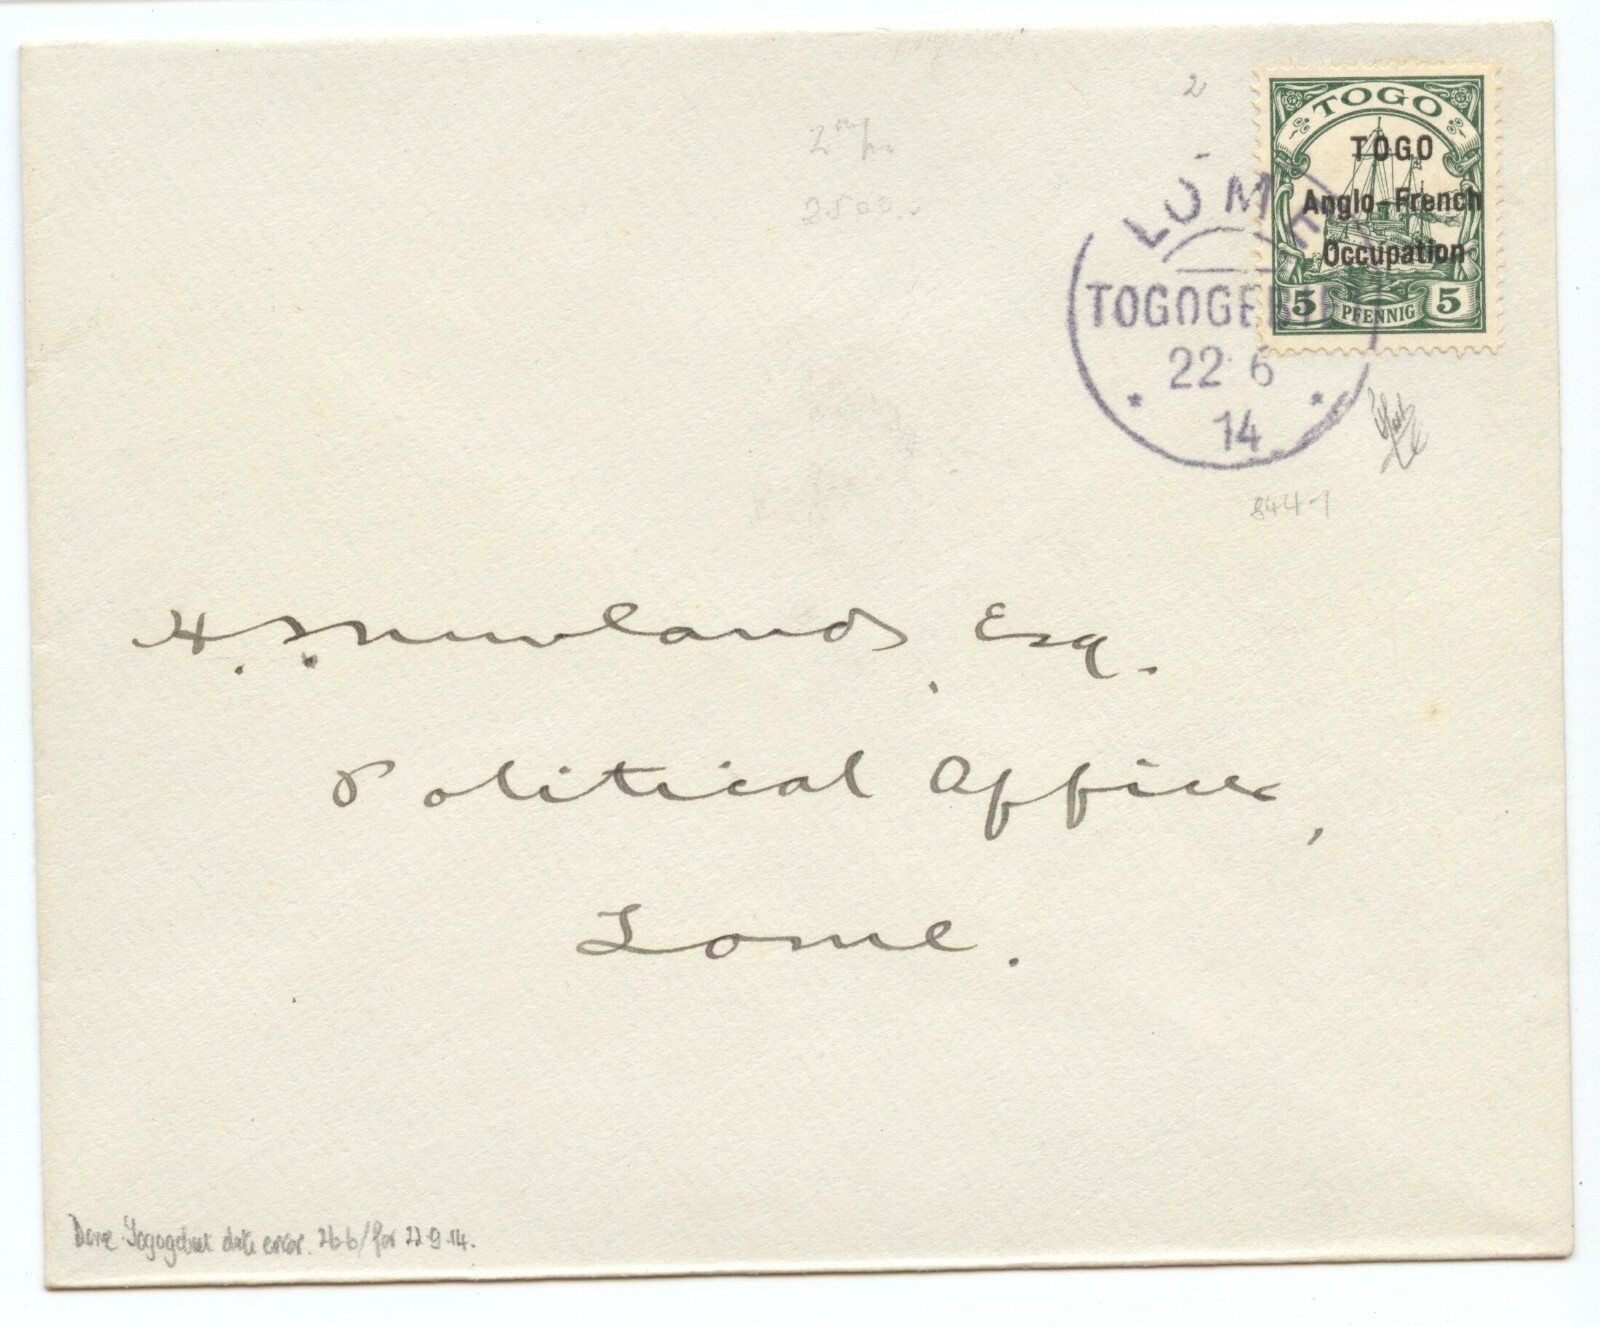 2
2500
TOGO
TOGO
Anglo-French
Occupation
5 PFENNIG 5
LOME
TOGOGEBIET
22 6
14
844-1
H. S. Newlands, Esq.
Political Officer,
Lome.
Togogebiet date error. 22 6 / for 22 9.14.